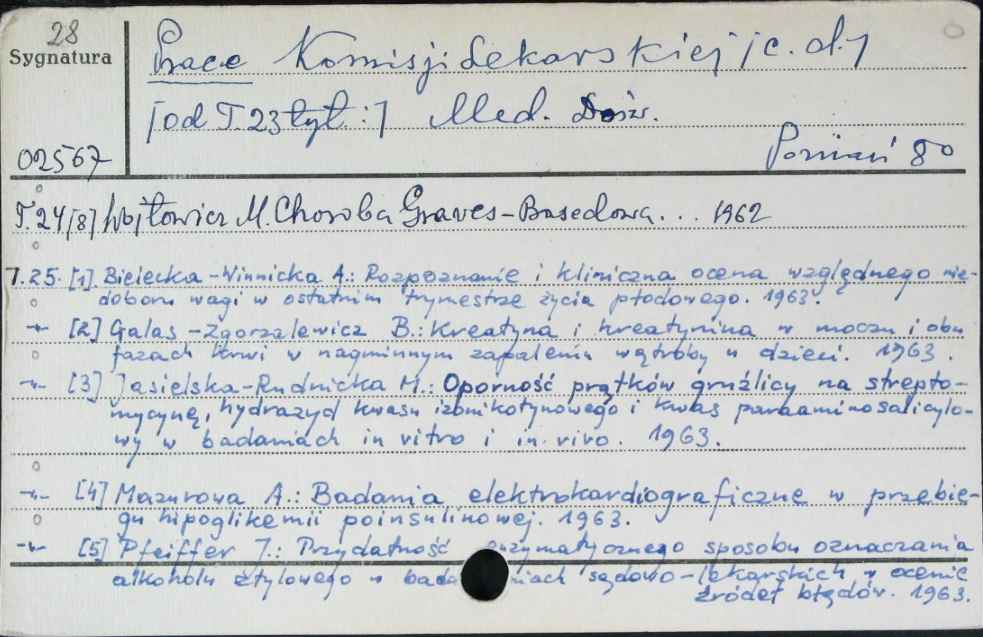 28
Sygnatura
Prace Komisji Lekarskiej [c.d.]
[od T.23 tyt.:] Med. Dośw.
02567
Poznań 80
T.24[8] Wojtowicz M. Choroba Graves-Basedowa... 1962
T.25. [1]. Bielecka-Winnicka A.: Rozpoznanie i kliniczna ocena względnego nie-
doboru wagi w ostatnim trymestrze życia płodowego. 1963.
-"- [2] Galas-Zgorzalewicz B.: Kreatyna i kreatynina w moczu i obu
fazach krwi w nagminnym zapaleniu wątroby u dzieci. 1963.
-"- [3] Jasielska-Rudnicka M.: Oporność prątków gruźlicy na strepto-
mycynę, hydrazyd kwasu izonikotynowego i kwas paraaminosalicylo-
wy w badaniach in vitro i in vivo. 1963.
-"- [4] Mazurowa A.: Badania elektrokardiograficzne w przebie-
gu hipoglikemii poinsulinowej. 1963.
-"- [5] Pfeiffer J.: Przydatność enzymatycznego sposobu oznaczania
alkoholu etylowego w badaniach sądowo-lekarskich w ocenie
źródeł błędów. 1963.